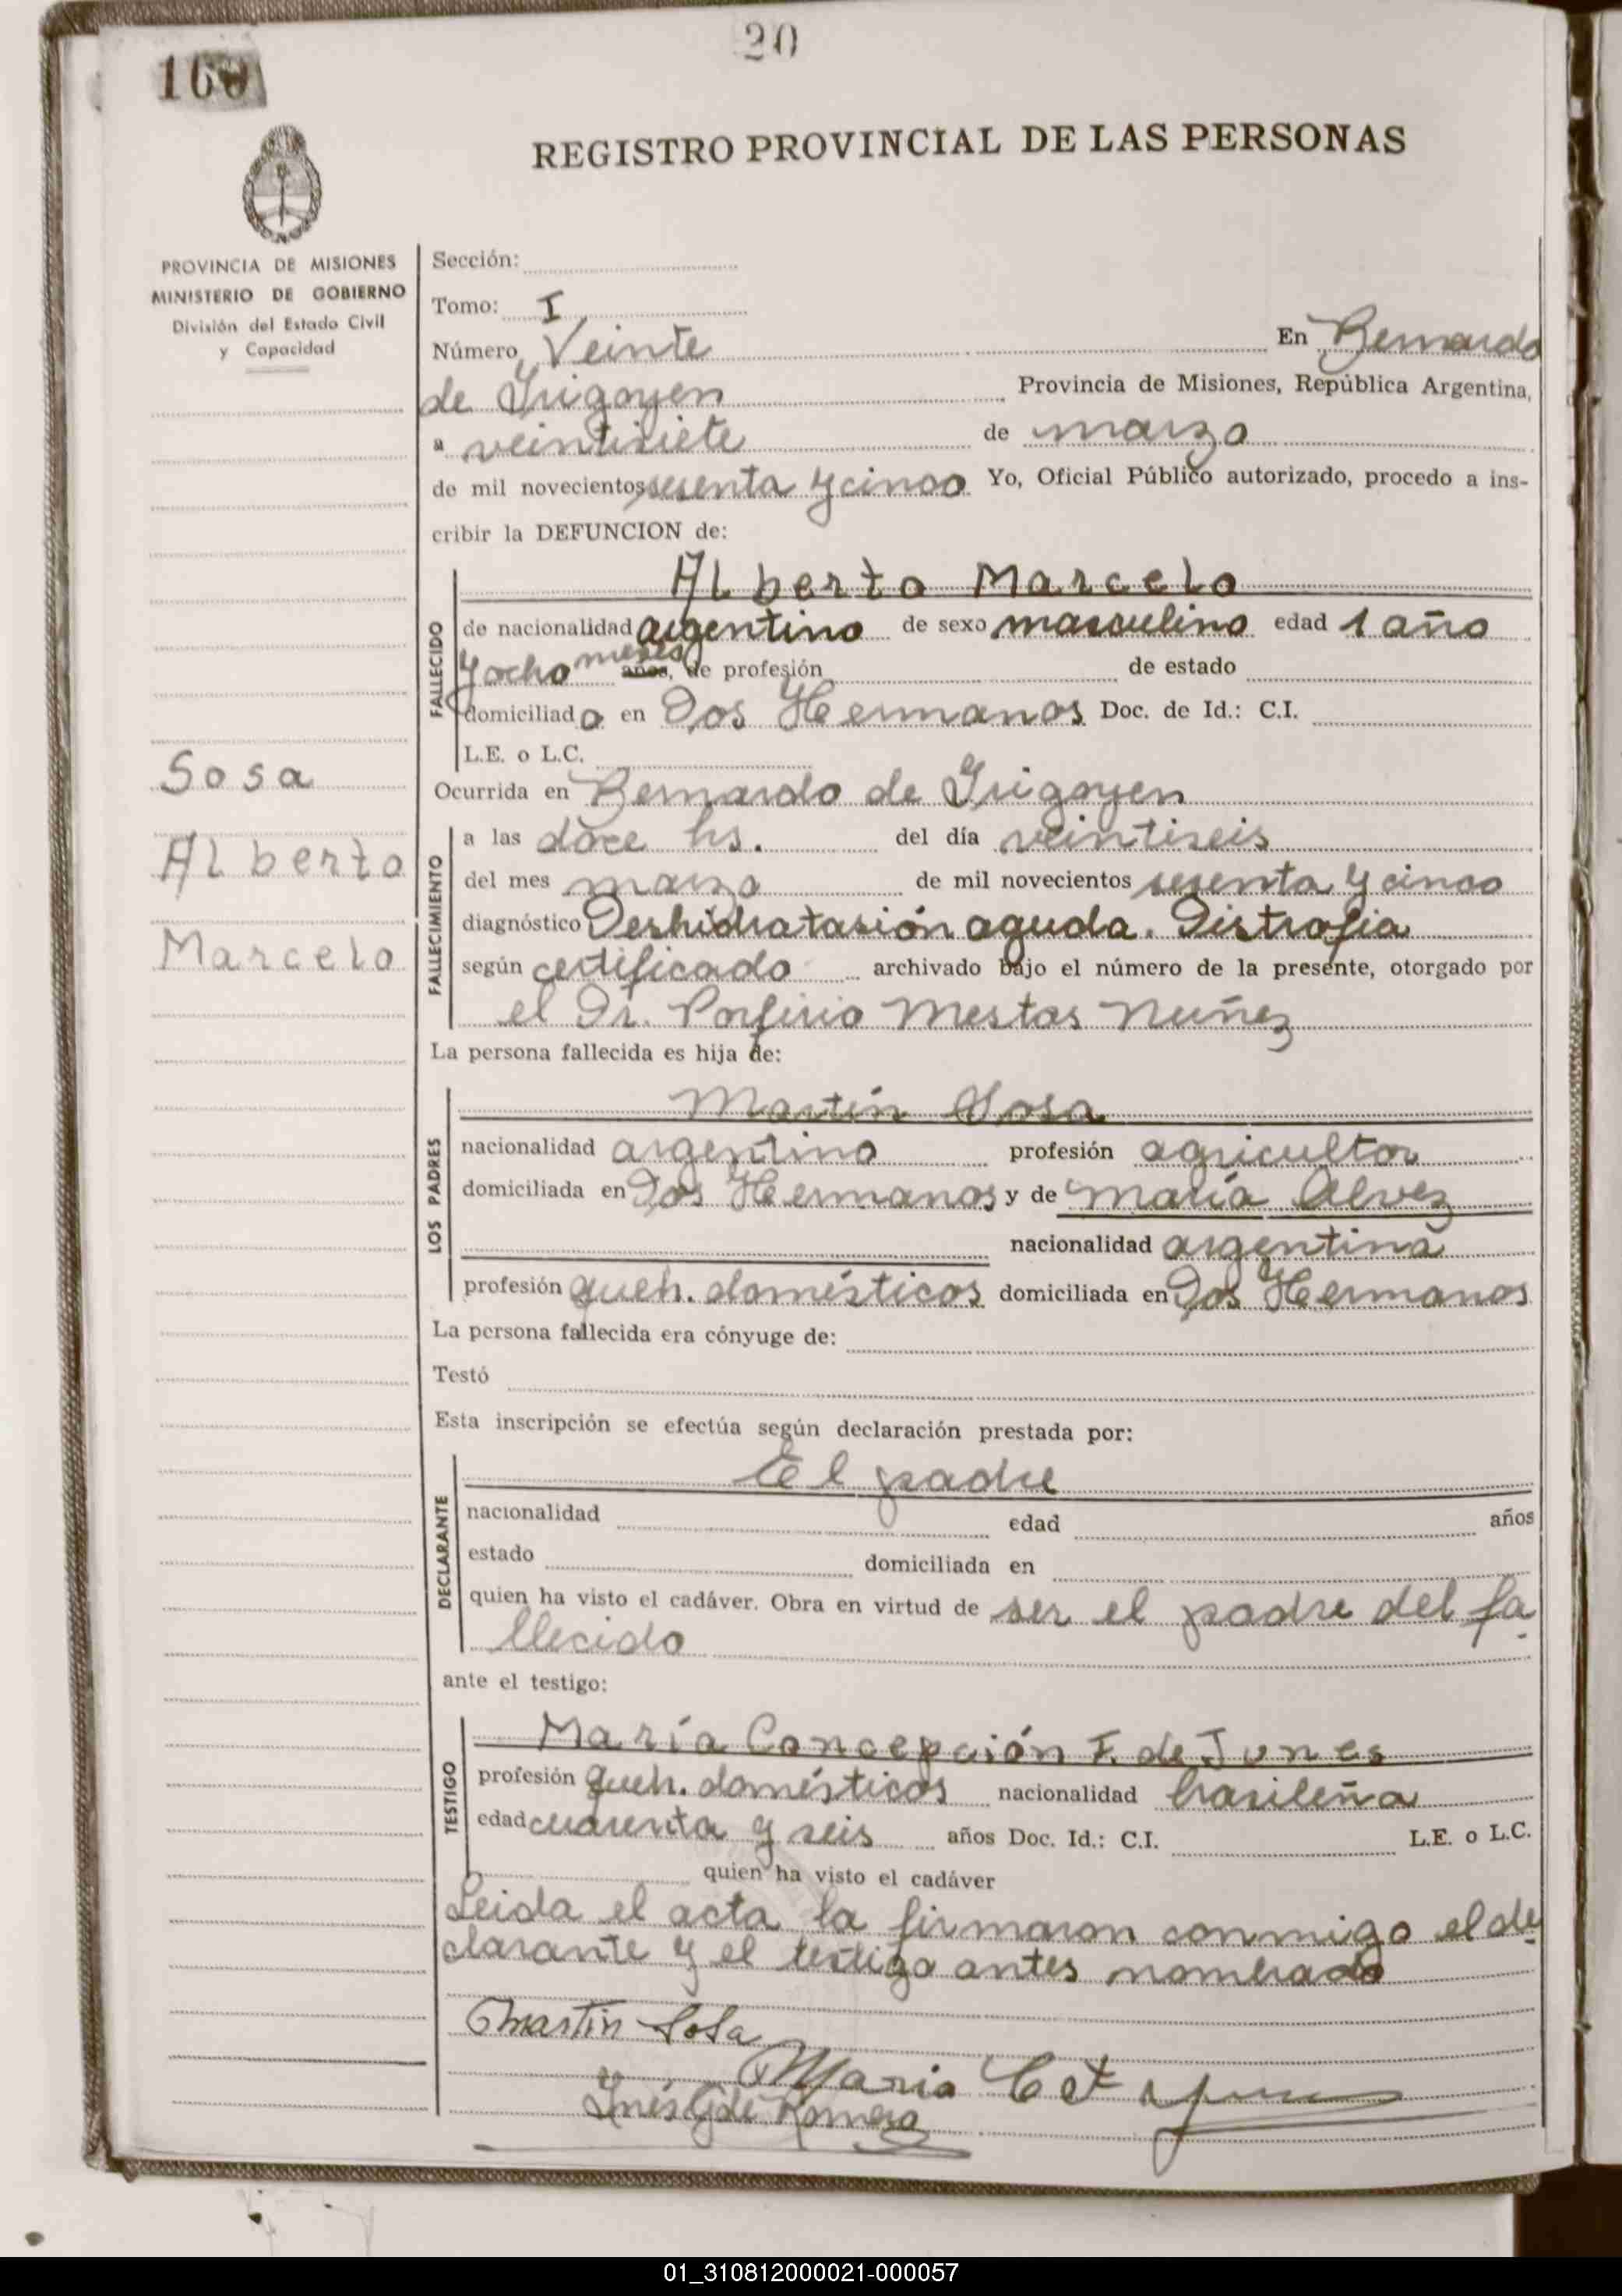 20
160
REGISTRO PROVINCIAL DE LAS PERSONAS
PROVINCIA DE MISIONES
MINISTERIO DE GOBIERNO
División del Estado Civil
y Capacidad
Sosa
Alberto
Marcelo
Sección:
Tomo: I
Número Veinte En Bernardo
de Irigoyen Provincia de Misiones, República Argentina,
a veintisiete de marzo
de mil novecientos sesenta y cinco Yo, Oficial Público autorizado, procedo a ins-
cribir la DEFUNCION de:
FALLECIDO
Alberto Marcelo
de nacionalidad argentino de sexo masculino edad 1 año
y ocho meses años, de profesión de estado
domiciliado en Dos Hermanos Doc. de Id.: C.I.
L.E. o L.C.
Ocurrida en Bernardo de Irigoyen
FALLECIMIENTO
a las doce hs. del día veintiseis
del mes marzo de mil novecientos sesenta y cinco
diagnóstico Deshidratasión aguda. Distrofia
según certificado archivado bajo el número de la presente, otorgado por
el Dr. Porfirio Mestas Nuñez
La persona fallecida es hija de:
LOS PADRES
Martín Sosa
nacionalidad argentino profesión agricultor
domiciliada en Dos Hermanos y de María Alvez
nacionalidad argentina
profesión queh. domésticos domiciliada en Dos Hermanos
La persona fallecida era cónyuge de:
Testó
Esta inscripción se efectúa según declaración prestada por:
DECLARANTE
El padre
nacionalidad edad años
estado domiciliada en
quien ha visto el cadáver. Obra en virtud de ser el padre del fa
llecido
ante el testigo:
TESTIGO
María Concepción F. de Junes
profesión queh. domésticos nacionalidad brasileña
edad cuarenta y seis años Doc. Id.: C.I. L.E. o L.C.
quien ha visto el cadáver
Leida el acta la firmaron conmigo el de
clarante y el testigo antes nombrado
Martin Sosa
Maria C
Inés G de Romero
01_310812000021-000057